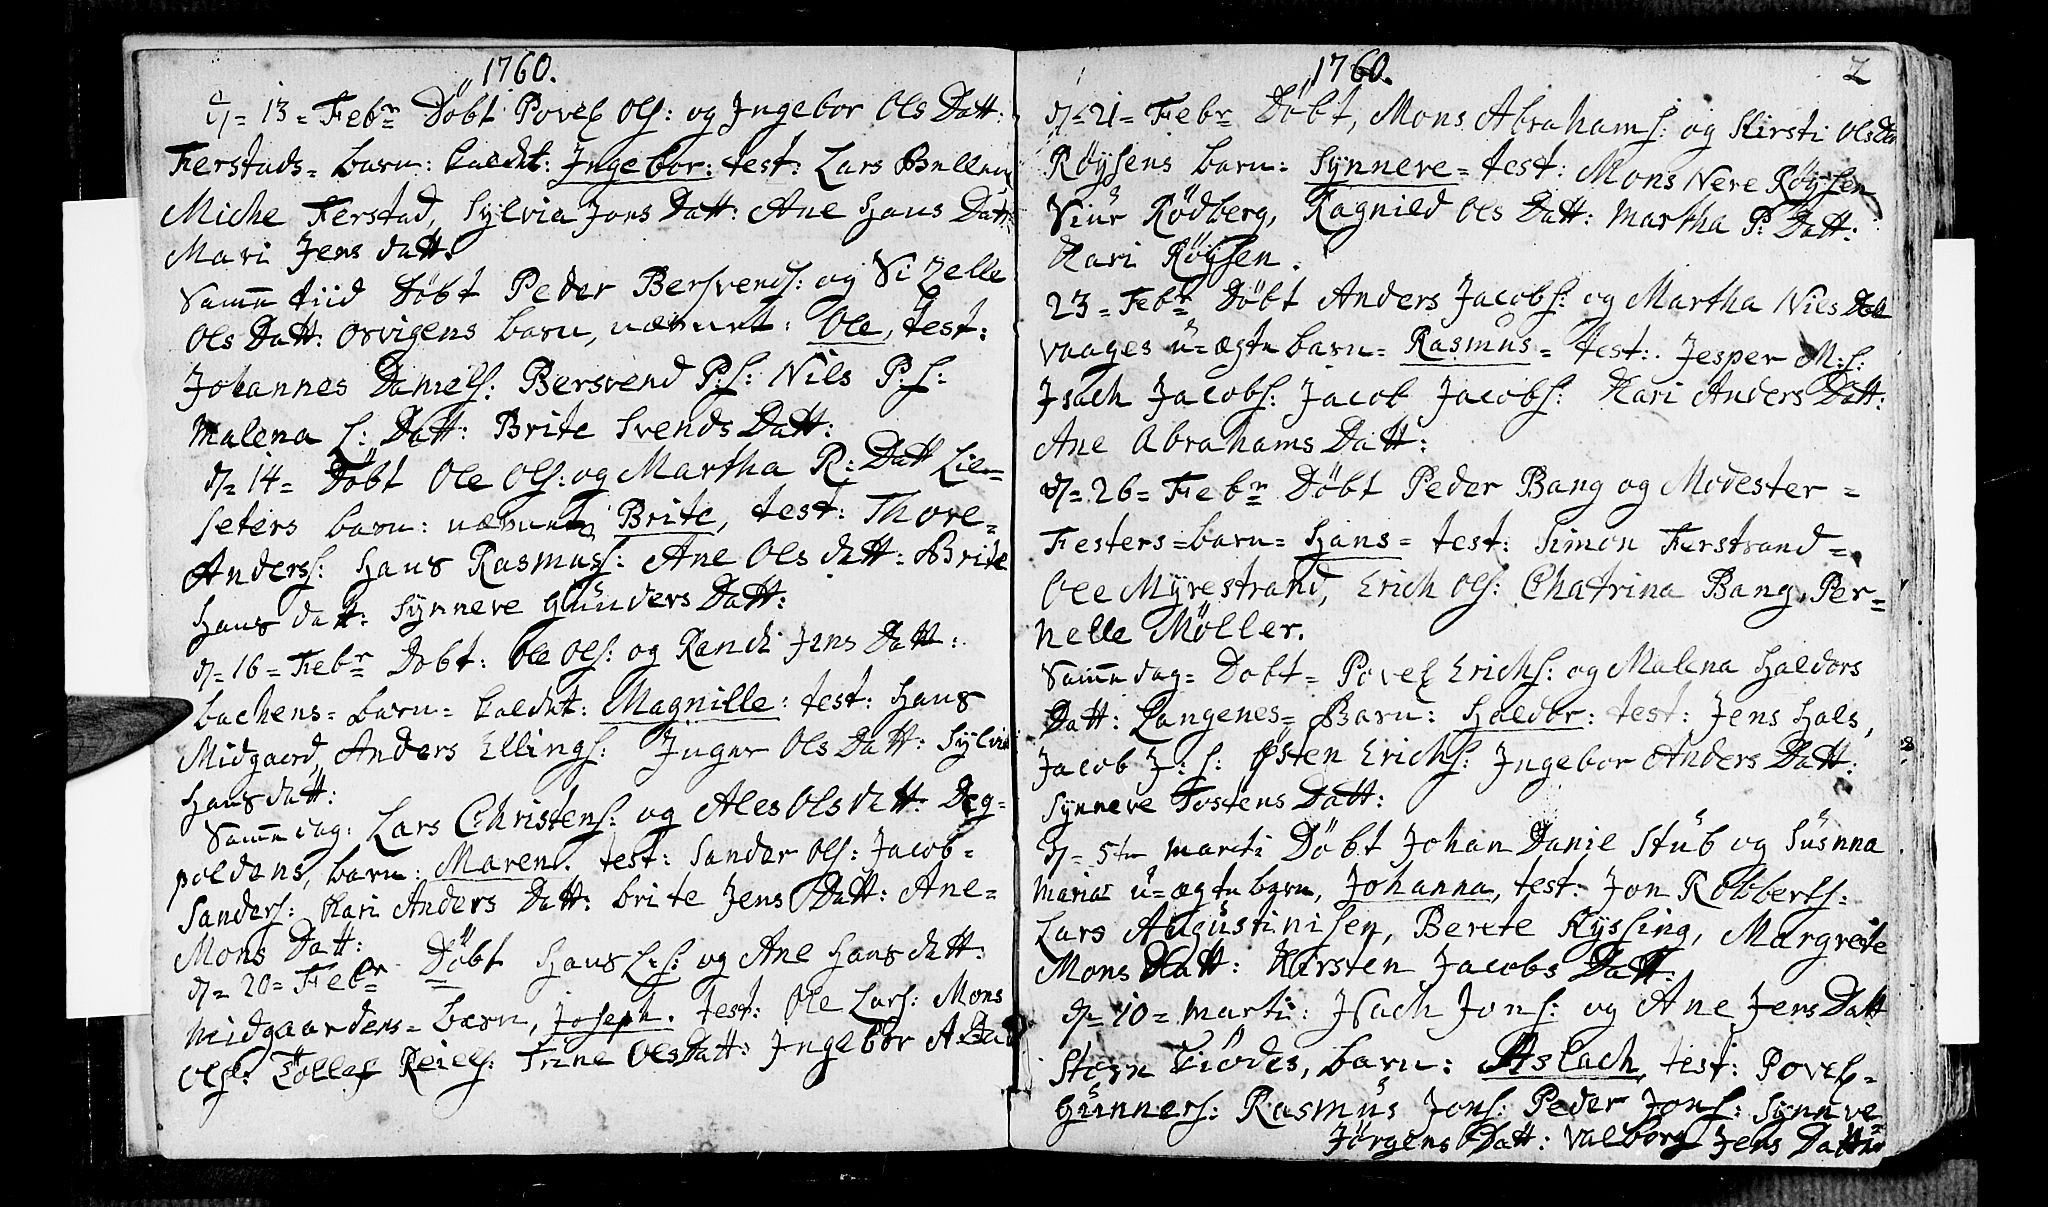 1760.
d= 13 = Febr Döbt Povel Ols: og Jngebor Ols Datt:
Ferstads= barn: kaldet: Jngebor: test: Lars
Miche Ferstad, Sylvia Jons Datt: Ane Hans Datt:
Mari Jens datt:
Samme tiid Döbt Peder Bersvends: og Sizelle
Ols Datt: Orvigens barn, nævnet: Ole, test:
Johannes Daniels: Bersvend P:S: Nils P:S:
Malena L: Datt: Brite Svends Datt:
d= 14 = Döbt Ole Ols: og Martha R: Datt Lille=
seters barn: nævnet Brite, test: Thore=
Anders: Hans Rasmuss: Ane Ols datt: Brite
Hans datt: Synneve Gunders Datt:
d= 16 = Febr Dobt: Ole Ols: og Randi Jens Datt:
bachens= barn= kaldet: Magnille: test: Hans
Midgaard, Anders Ellings: Jnger Ols Datt: Sylvia
Hans datt:
Samme dag: Lars Christens: og Ales Ols datt: Deg=
poldens, barn: Maren. test: Sander Ols: Jacob=
Sanders: Kari Anders Datt: brite Jens Datt: Ane=
Mons Datt:
d= 20 = Febr Döbt Hans L:S: og Ane Hans datt:
Midgaardens= barn, Joseph. test: Ole Lars: Mons
Ols: Tollef Keiels: Trine Ols Datt: Jngebor A:Dat
1760. 2
d= 21 = Febr Döbt, Mons Abrahams: og Kirsti Ols Da
Röysens barn: Synneve= test: Mons Nere Röysen
Siur Rödberg, Ragnild Ols Datt: Martha P: Datt:
Kari Röysen.
23 = Febr Döbt Anders Jacobs: og Martha Nils Dat
vaages u=ægte barn= Rasmus= test: Jesper M:S:
Jsach Jacobs: Jacob Jacobs: Kari Anders Datt:
Ane Abrahams Datt:
d= 26 = Febr Döbt Peder Bang og Modester=
Festers= barn= Hans= test: Simon Ferstrand=
Ole Myrestrand, Erich Ols: Chatrina Bang, Per=
nelle Möller.
Samme dag= Dobt= Povel Erichs: og Malena Haldors
Datt: Langenes= Barn: Haldor: test: Jens Hals,
Jacob J:S: Østen Erichs: Jngebor Anders Datt:
Synneve Tostens Datt:
d= 5te Marti Döbt Johan Danie Stub og Susnna
Maria u=ægte barn, Johanna, test: Jon Robberts:
Lars Augustinisen, Berete Kyssing, Margrete
Mons Datt: Kirsten Jacobs Datt:
d= 10 = Marti: Jsach Jons: og Ane Jens Datt
Fiødes, barn: Aslach, test: Povel=
Gunners: Rasmus Jons: Peder Jons: Synneve
Jörgens Datt: Valborg Jens Datt: